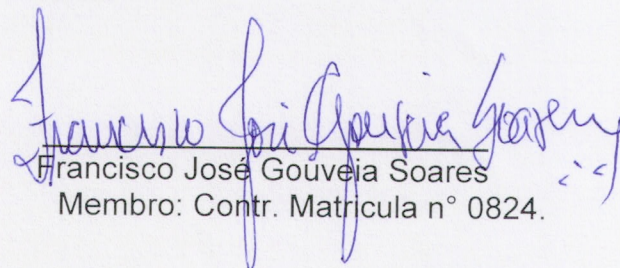 Francisco José Gouveia Soares
Francisco José Gouveia Soares
Membro: Contr. Matricula n° 0824.